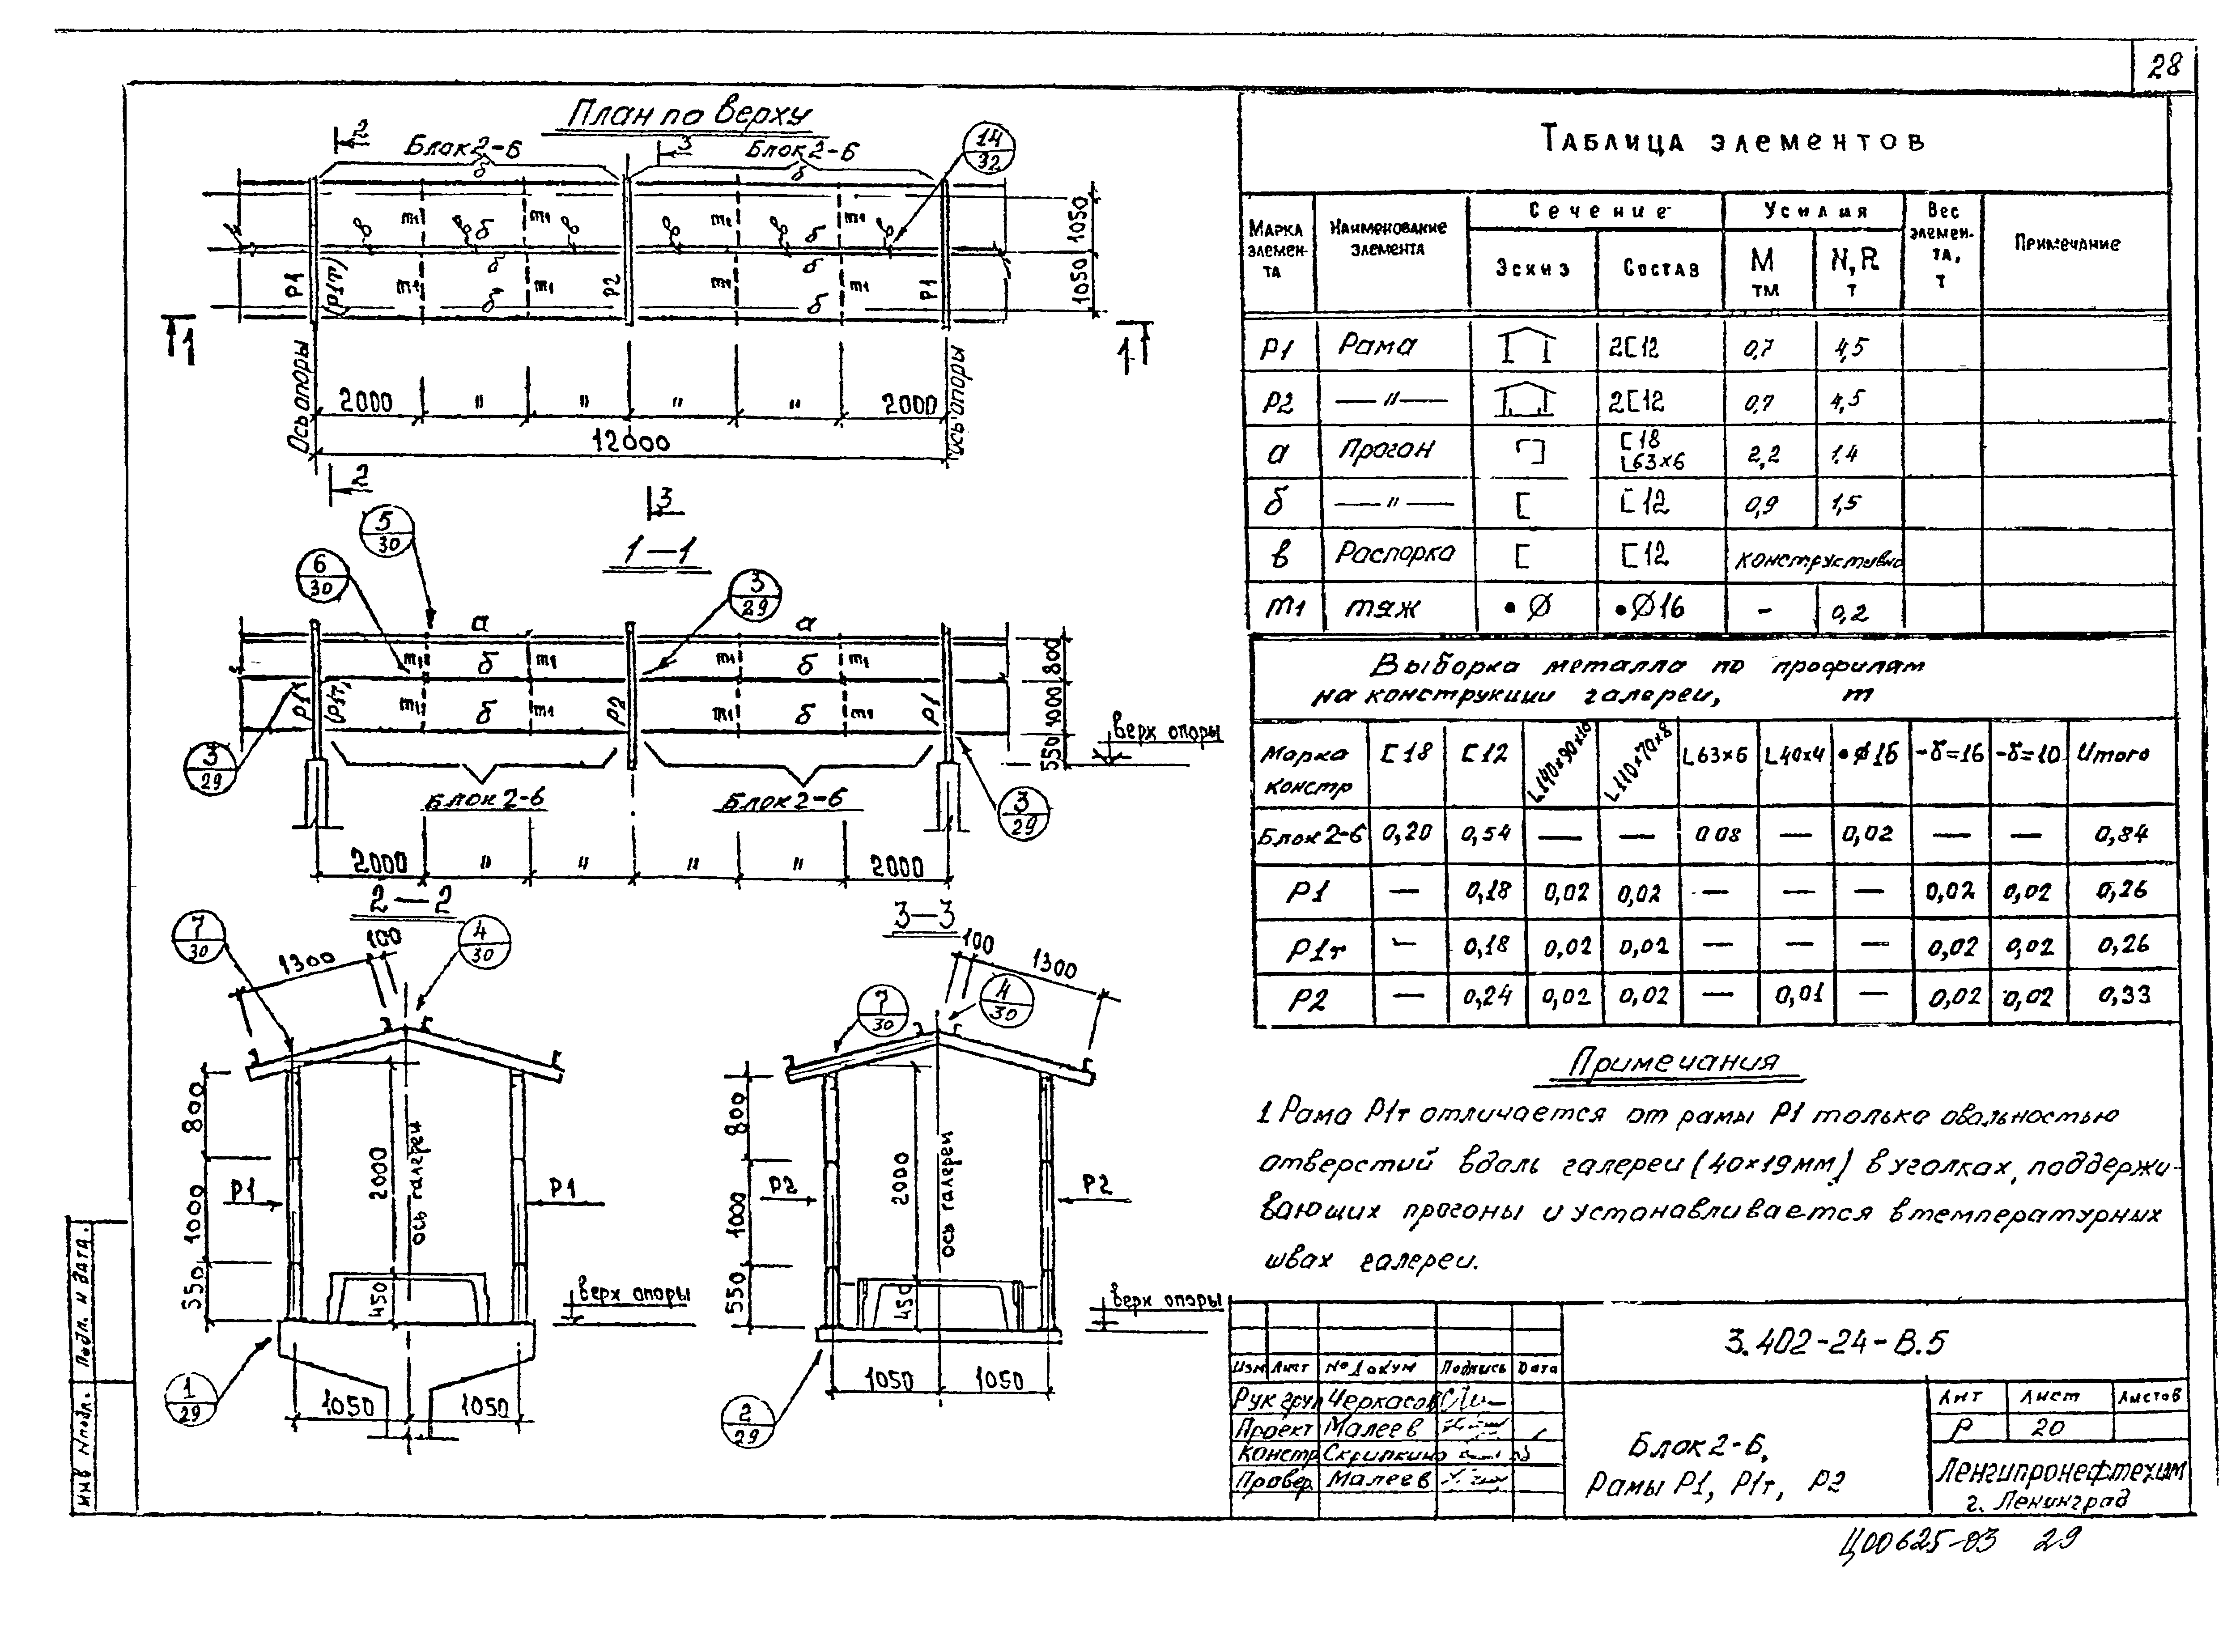 28
План по верху
2
3
Блок 2-6
Блок 2-6
14
32
б
б
m1
m1
m1
m1
в
в
б
в
в
б
в
в
б
б
1050
1050
Р1
(Р1т)
m1
m1
Р2
m1
m1
Р1
б
б
1
1
Ось опоры
Ось опоры
2000
"
"
"
"
2000
12000
2
3
5
30
1-1
6
30
3
29
а
а
m1
б
m1
m1
б
m1
800
Р1
(Р1т)
m1
б
m1
Р2
m1
б
m1
Р1
1000
550
верх опоры
3
29
Блок 2-6
Блок 2-6
3
29
2000
"
"
"
"
2000
2-2
3-3
7
30
4
30
1300
100
100
1300
7
30
4
30
800
1000
550
Р1
Р1
2000
450
ось галереи
верх опоры
1
29
1050
1050
800
1000
550
Р2
Р2
2000
450
ось галереи
верх опоры
2
29
1050
1050
Таблица элементов
Марка элемен-та
Наименование элемента
Сечение
Усилия
Вес элемен-та, т
Примечание
Эскиз
Состав
М тм
N,R т
Р1 Рама 2[12 0,7 4,5
Р2 —"— 2[12 0,7 4,5
а Прогон [18 L63х6 2,2 1,4
б —"— [ [12 0,9 1,5
в Распорка [ [12 конструктивно
m1 тяж •Ø •Ø16 - 0,2
Выборка металла по профилям
на конструкции галереи, т
Марка констр [18 [12 L140х90х10 L110х70х8 L63х6 L40х4 •Ø16 -δ=16 -δ=10 Итого
Блок 2-6 0,20 0,54 — — 0 08 — 0,02 — — 0,84
Р1 — 0,18 0,02 0,02 — — — 0,02 0,02 0,26
Р1т — 0,18 0,02 0,02 — — — 0,02 0,02 0,26
Р2 — 0,24 0,02 0,02 — 0,01 — 0,02 0,02 0,33
Примечания
1 Рама Р1т отличается от рамы Р1 только овальностью
отверстий вдоль галереи (40х19мм) в уголках, поддержи-
вающих прогоны и устанавливается в температурных
швах галереи.
3.402-24-В.5
Изм Лист № докум Подпись Дата
Рук груп Черкасов
Проект Малеев
Констр Скрипкина
Провер. Малеев
Блок 2-6,
Рамы Р1, Р1т, Р2
Лит Лист Листов
Р 20
Ленгипронефтехим
г. Ленинград
Инв № подл. Подл. и дата.
Ц00625-03 29